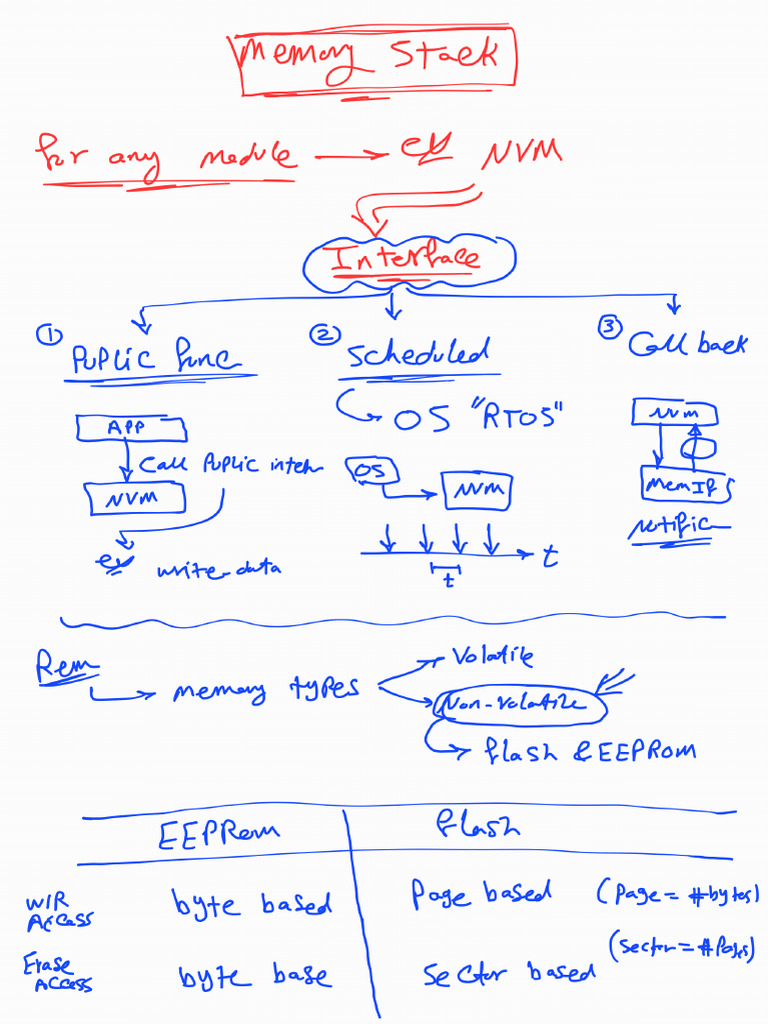 Memory Stack
for any module → ex NVM
Interface
① Public func
② Scheduled
③ Call back
OS "RTOS"
APP
Call Public inter
NVM
ex write data
OS
NVM
t
t
NVM
MemIf
Notific
Rem
memory types
Volatile
Non-Volatile
flash & EEPROM
EEPRom flash
W/R Access byte based Page based (page = #bytes)
(Sector = #Pages)
Erase Access byte base Sector based